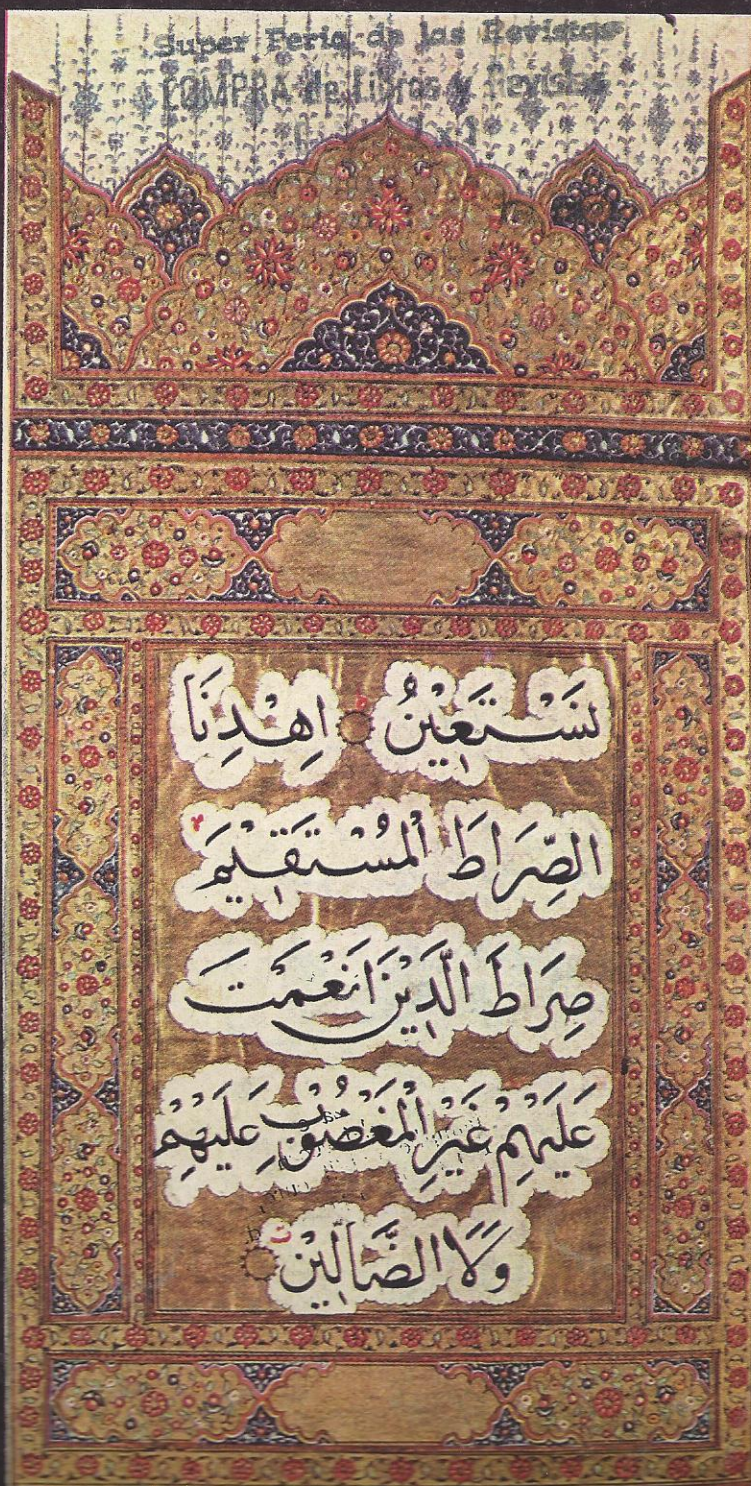 Super Feria de las Revistas
COMPRA de Libros y Revistas
نَسْتَعِيْنُ اِهْدِنَا
الصِّرَاطَ الْمُسْتَقِيْمَ
صِرَاطَ الَّذِيْنَ اَنْعَمْتَ
عَلَيْهِمْ غَيْرِ الْمَغْضُوْبِ عَلَيْهِمْ
وَلَا الضَّالِّيْنَ